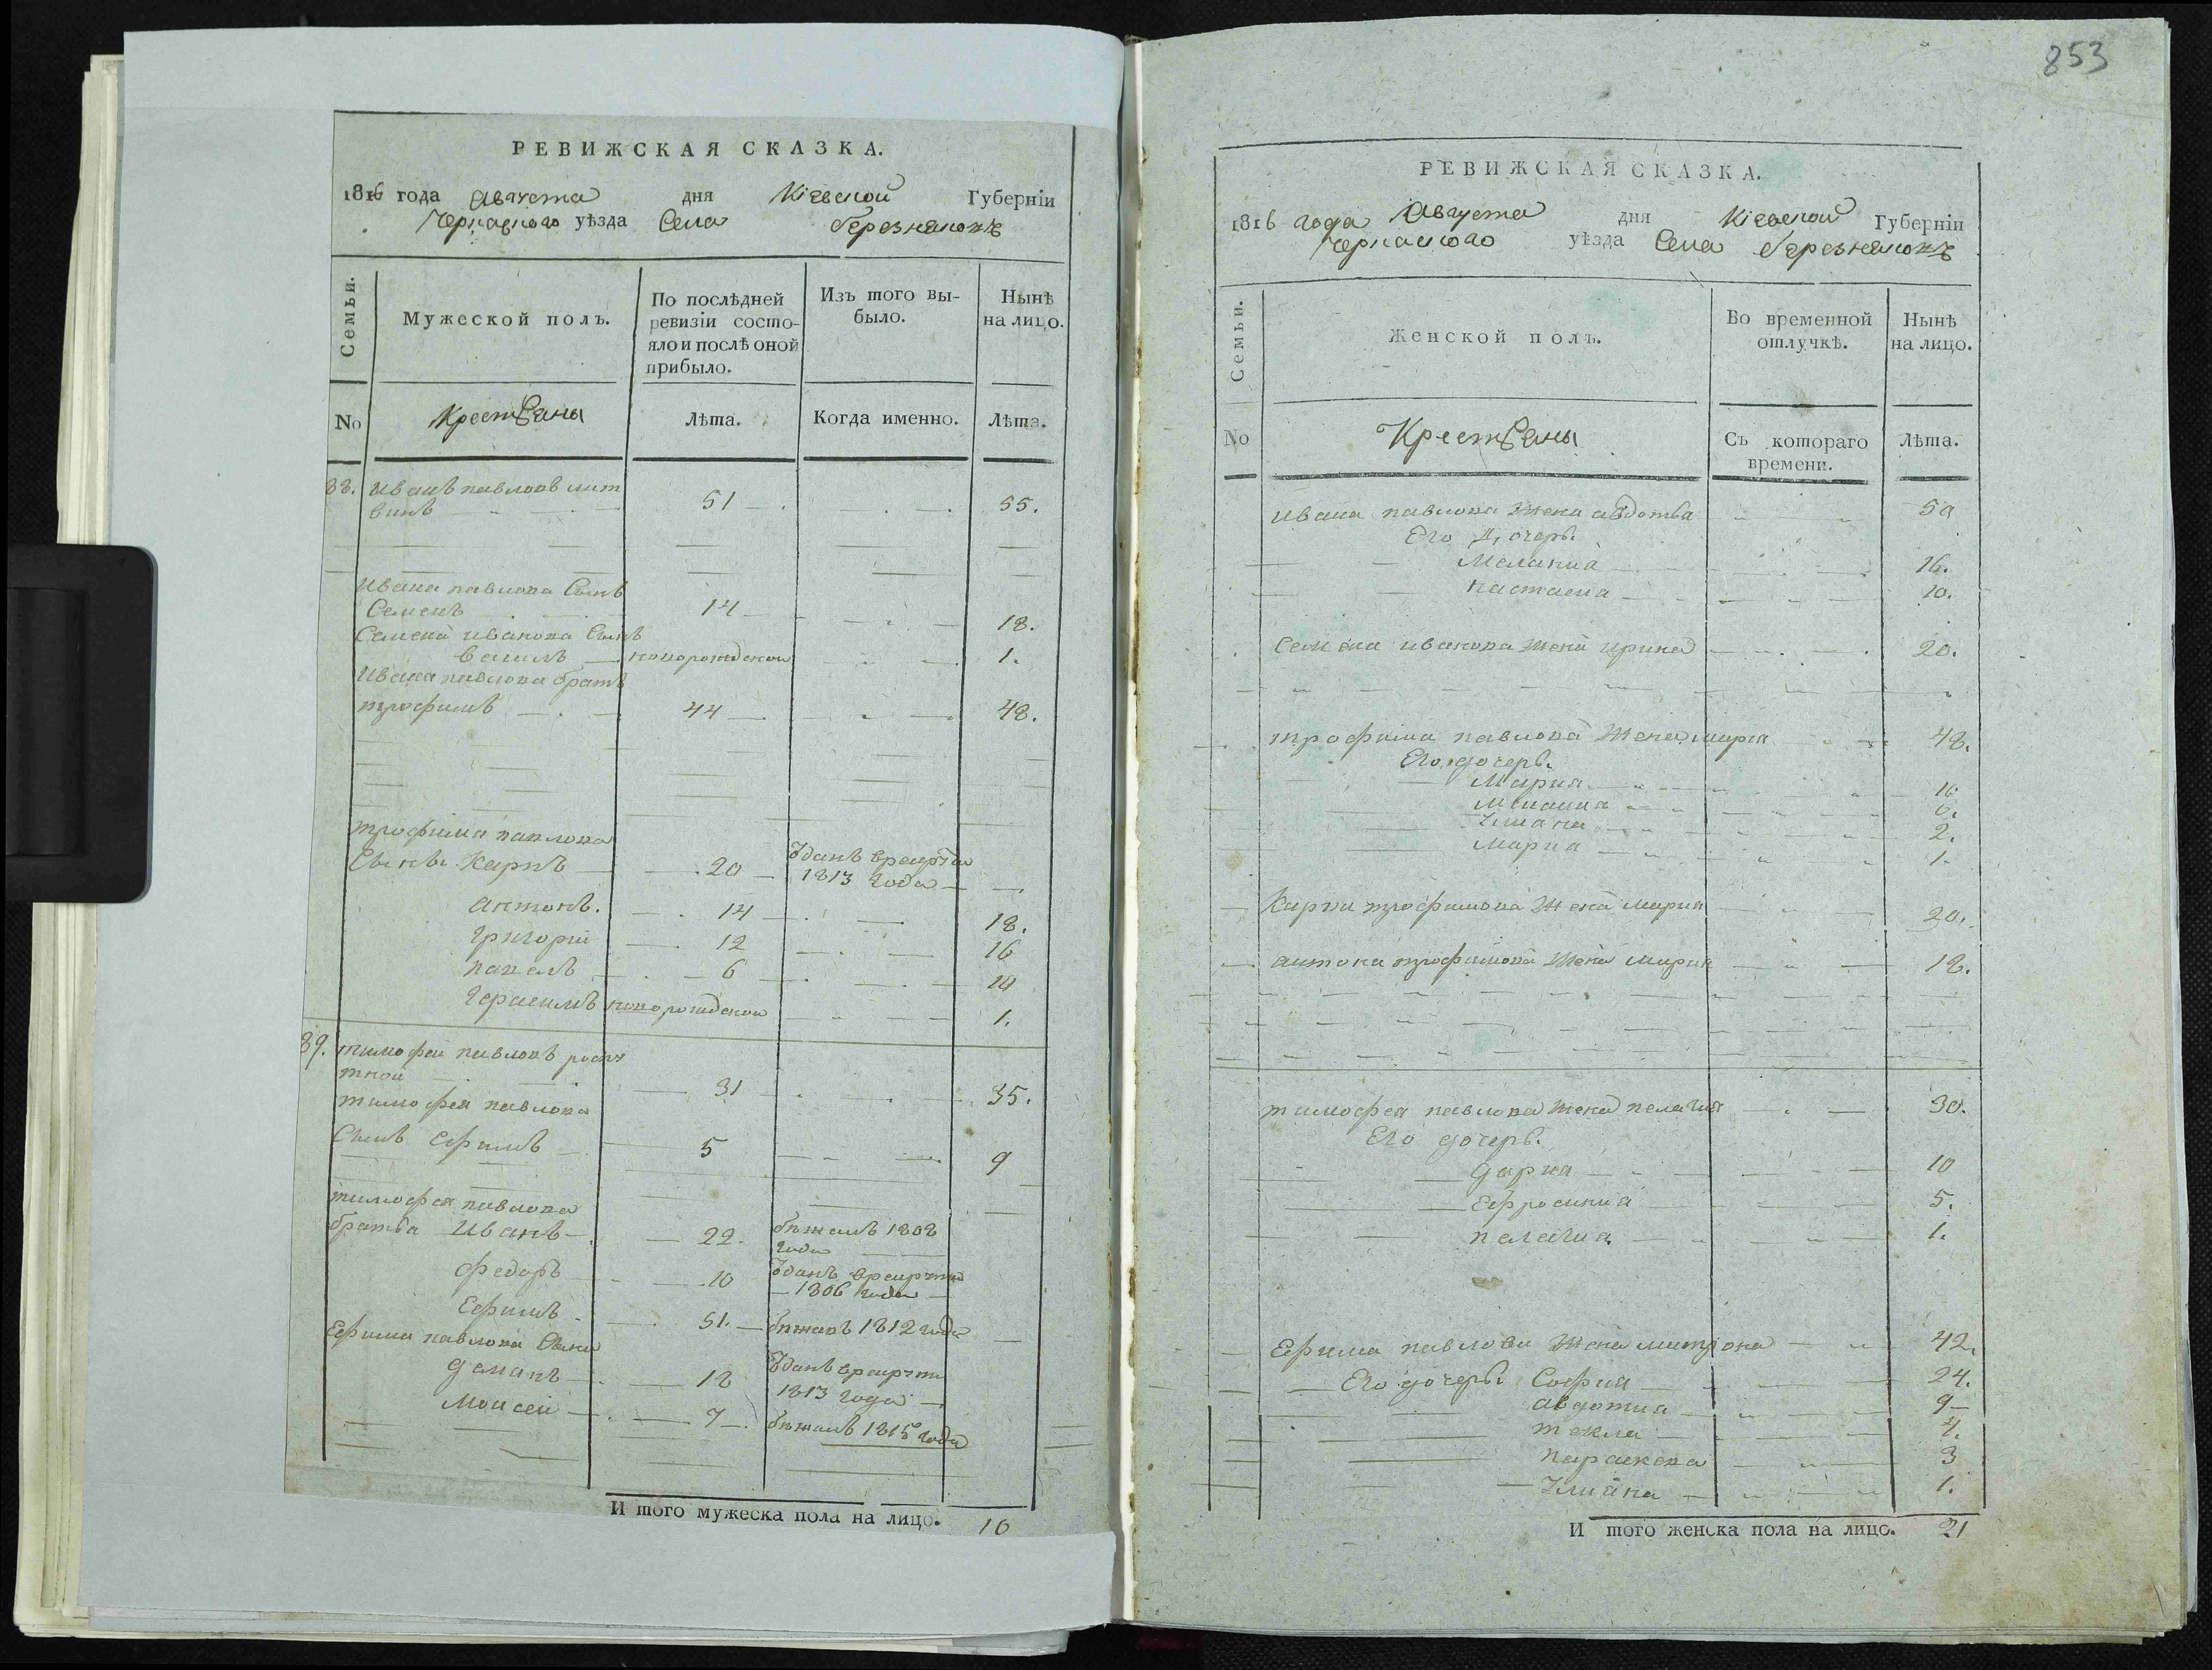 РЕВИЖСКАЯ СКАЗКА.
1816 года Августа дня Кіевской Губерніи
Черкаского уѣзда Села березняковъ
Семьи.
Мужеской полъ.
По послѣдней
ревизіи состо-
яло и послѣ оной
прибыло.
Изъ того вы-
было.
Нынѣ
на лицо.
No
Крестьяны
Лѣта.
Когда именно.
Лѣта.
38. Иванъ павловъ лит
винъ 51 55.
Ивана павлова Сынъ
Семенъ 14 18.
Семена иванова Сынъ
василь новорожденои 1.
Ивана павлова братъ
трофимъ 44 48.
трофима павлова
Сыны Карпъ 20 Ѣданъ врекруты
1813 года
антонъ. 14 18.
григорій 12 16
павелъ 6 10
герасимъ новорожденои 1.
39. тимофей павловъ
тной 31 35.
тимофея павлова
Сынъ Ефимъ 5 9
тимофея павлова
братья Иванъ 22. бежалъ 1808
года
Федоръ 10
1806 года
Ефимъ 51. бежалъ 1812 года
Ефима павлова Сыны
демянъ 18
1813 года
Моисей 7 бежалъ 1815 года
И того мужеска пола на лицо. 10
853
РЕВИЖСКАЯ СКАЗКА.
1816 года Августа дня Кіевской Губерніи
Черкаского уѣзда Села березняковъ
Семьи.
Женской полъ.
Во временной
отлучкѣ.
Нынѣ
на лицо.
No
Крестьяны
Съ котораго
времени.
Лѣта.
Ивана павлова жена авдотья 50
Его дочерь.
Мелания 16.
настасиа 10.
Семена иванова жена ирина 20.
трофима павлова жена мариа 48.
Его дочерь.
Мариа 10
6.
2.
Мариа 1.
Карпа трофимова жена мариа 20.
антона трофимова жена мариа 18.
тимофея павлова жена пелагия 30.
Его дочерь.
дариа 10
Ефросиниа 5.
пелагиа 1.
Ефима павлова жена митрона 42.
Его дочерь София 24.
авдотиа 9
текла 4.
параскева 3
1.
И того женска пола на лицо. 21